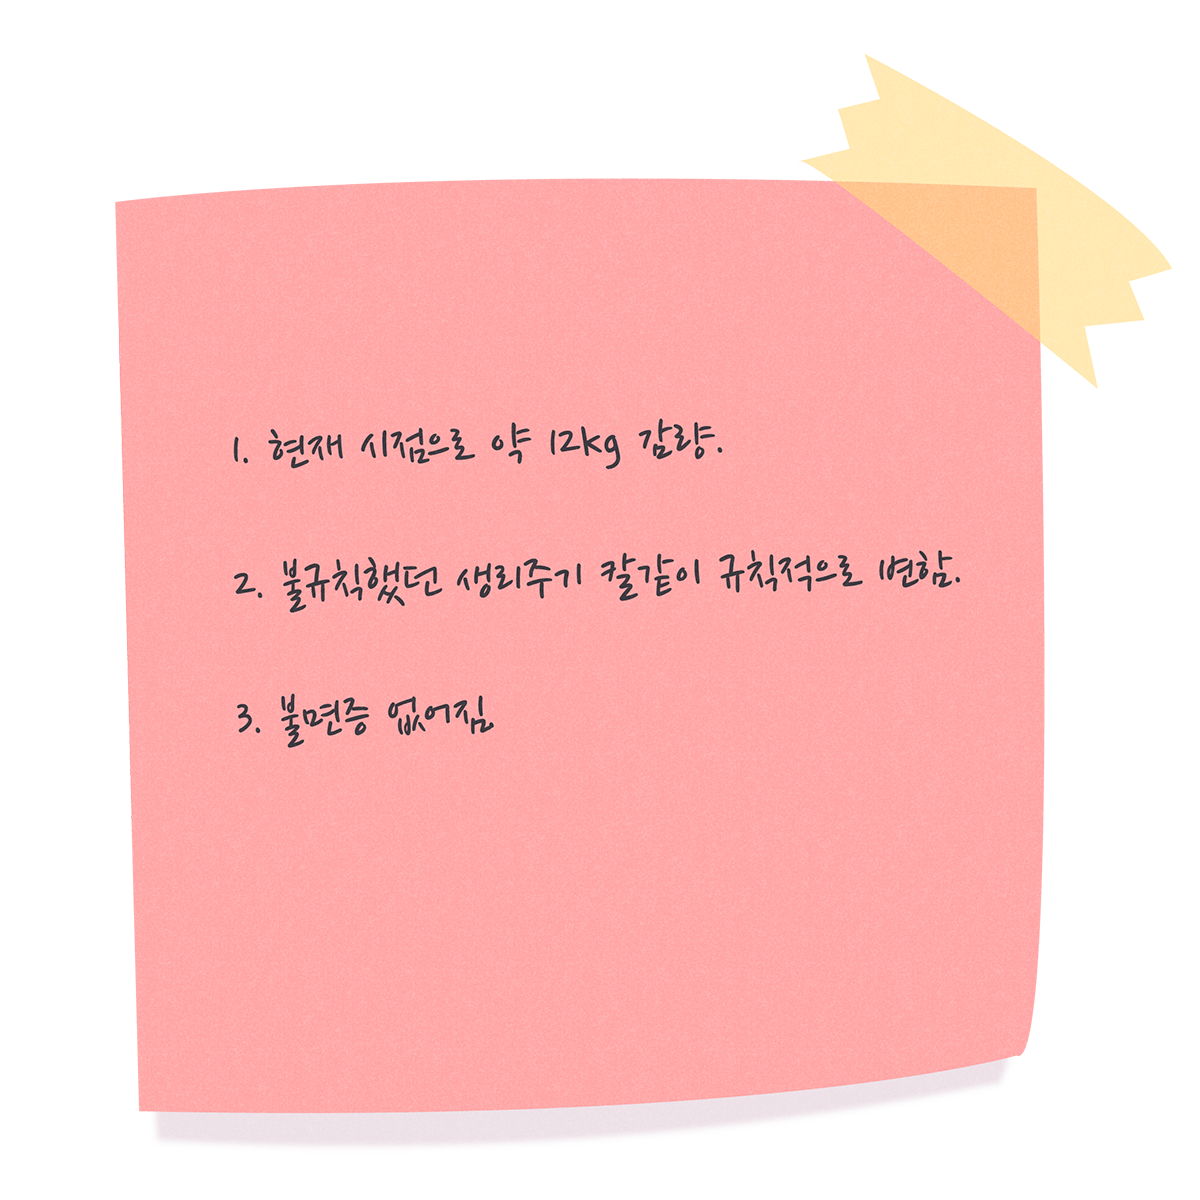 1. 현재 시점으로 약 12kg 감량.
2. 불규칙했던 생리주기 칼같이 규칙적으로 변함.
3. 불면증 없어짐.